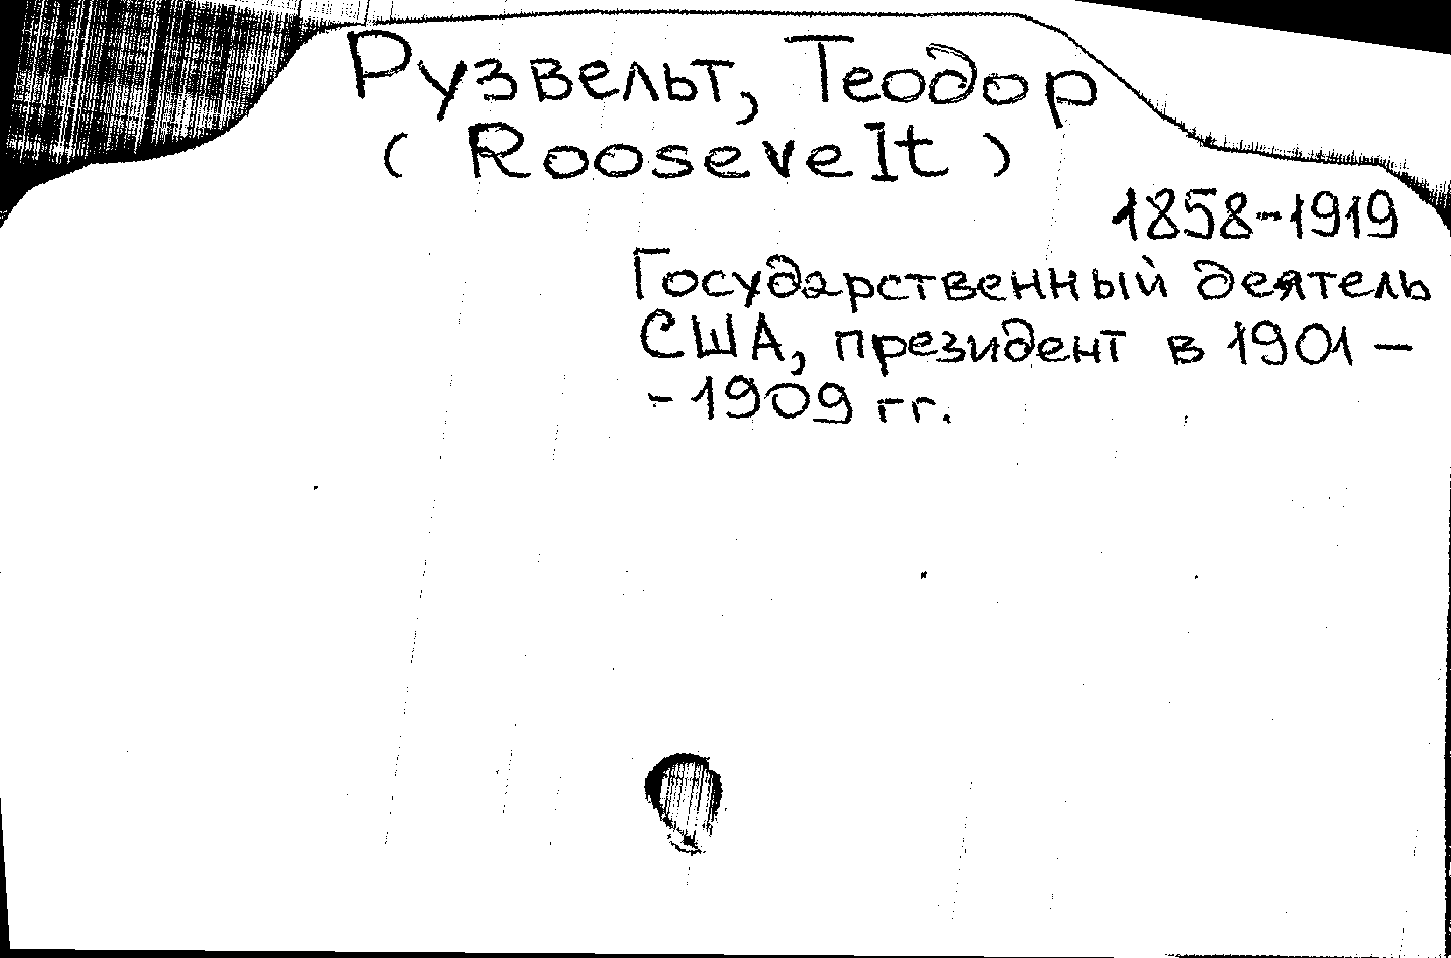 Рузвельт, Теодор
( Roosevelt )
1858-1919
Государственный деятель
США, президент в 1901 –
- 1909 гг.